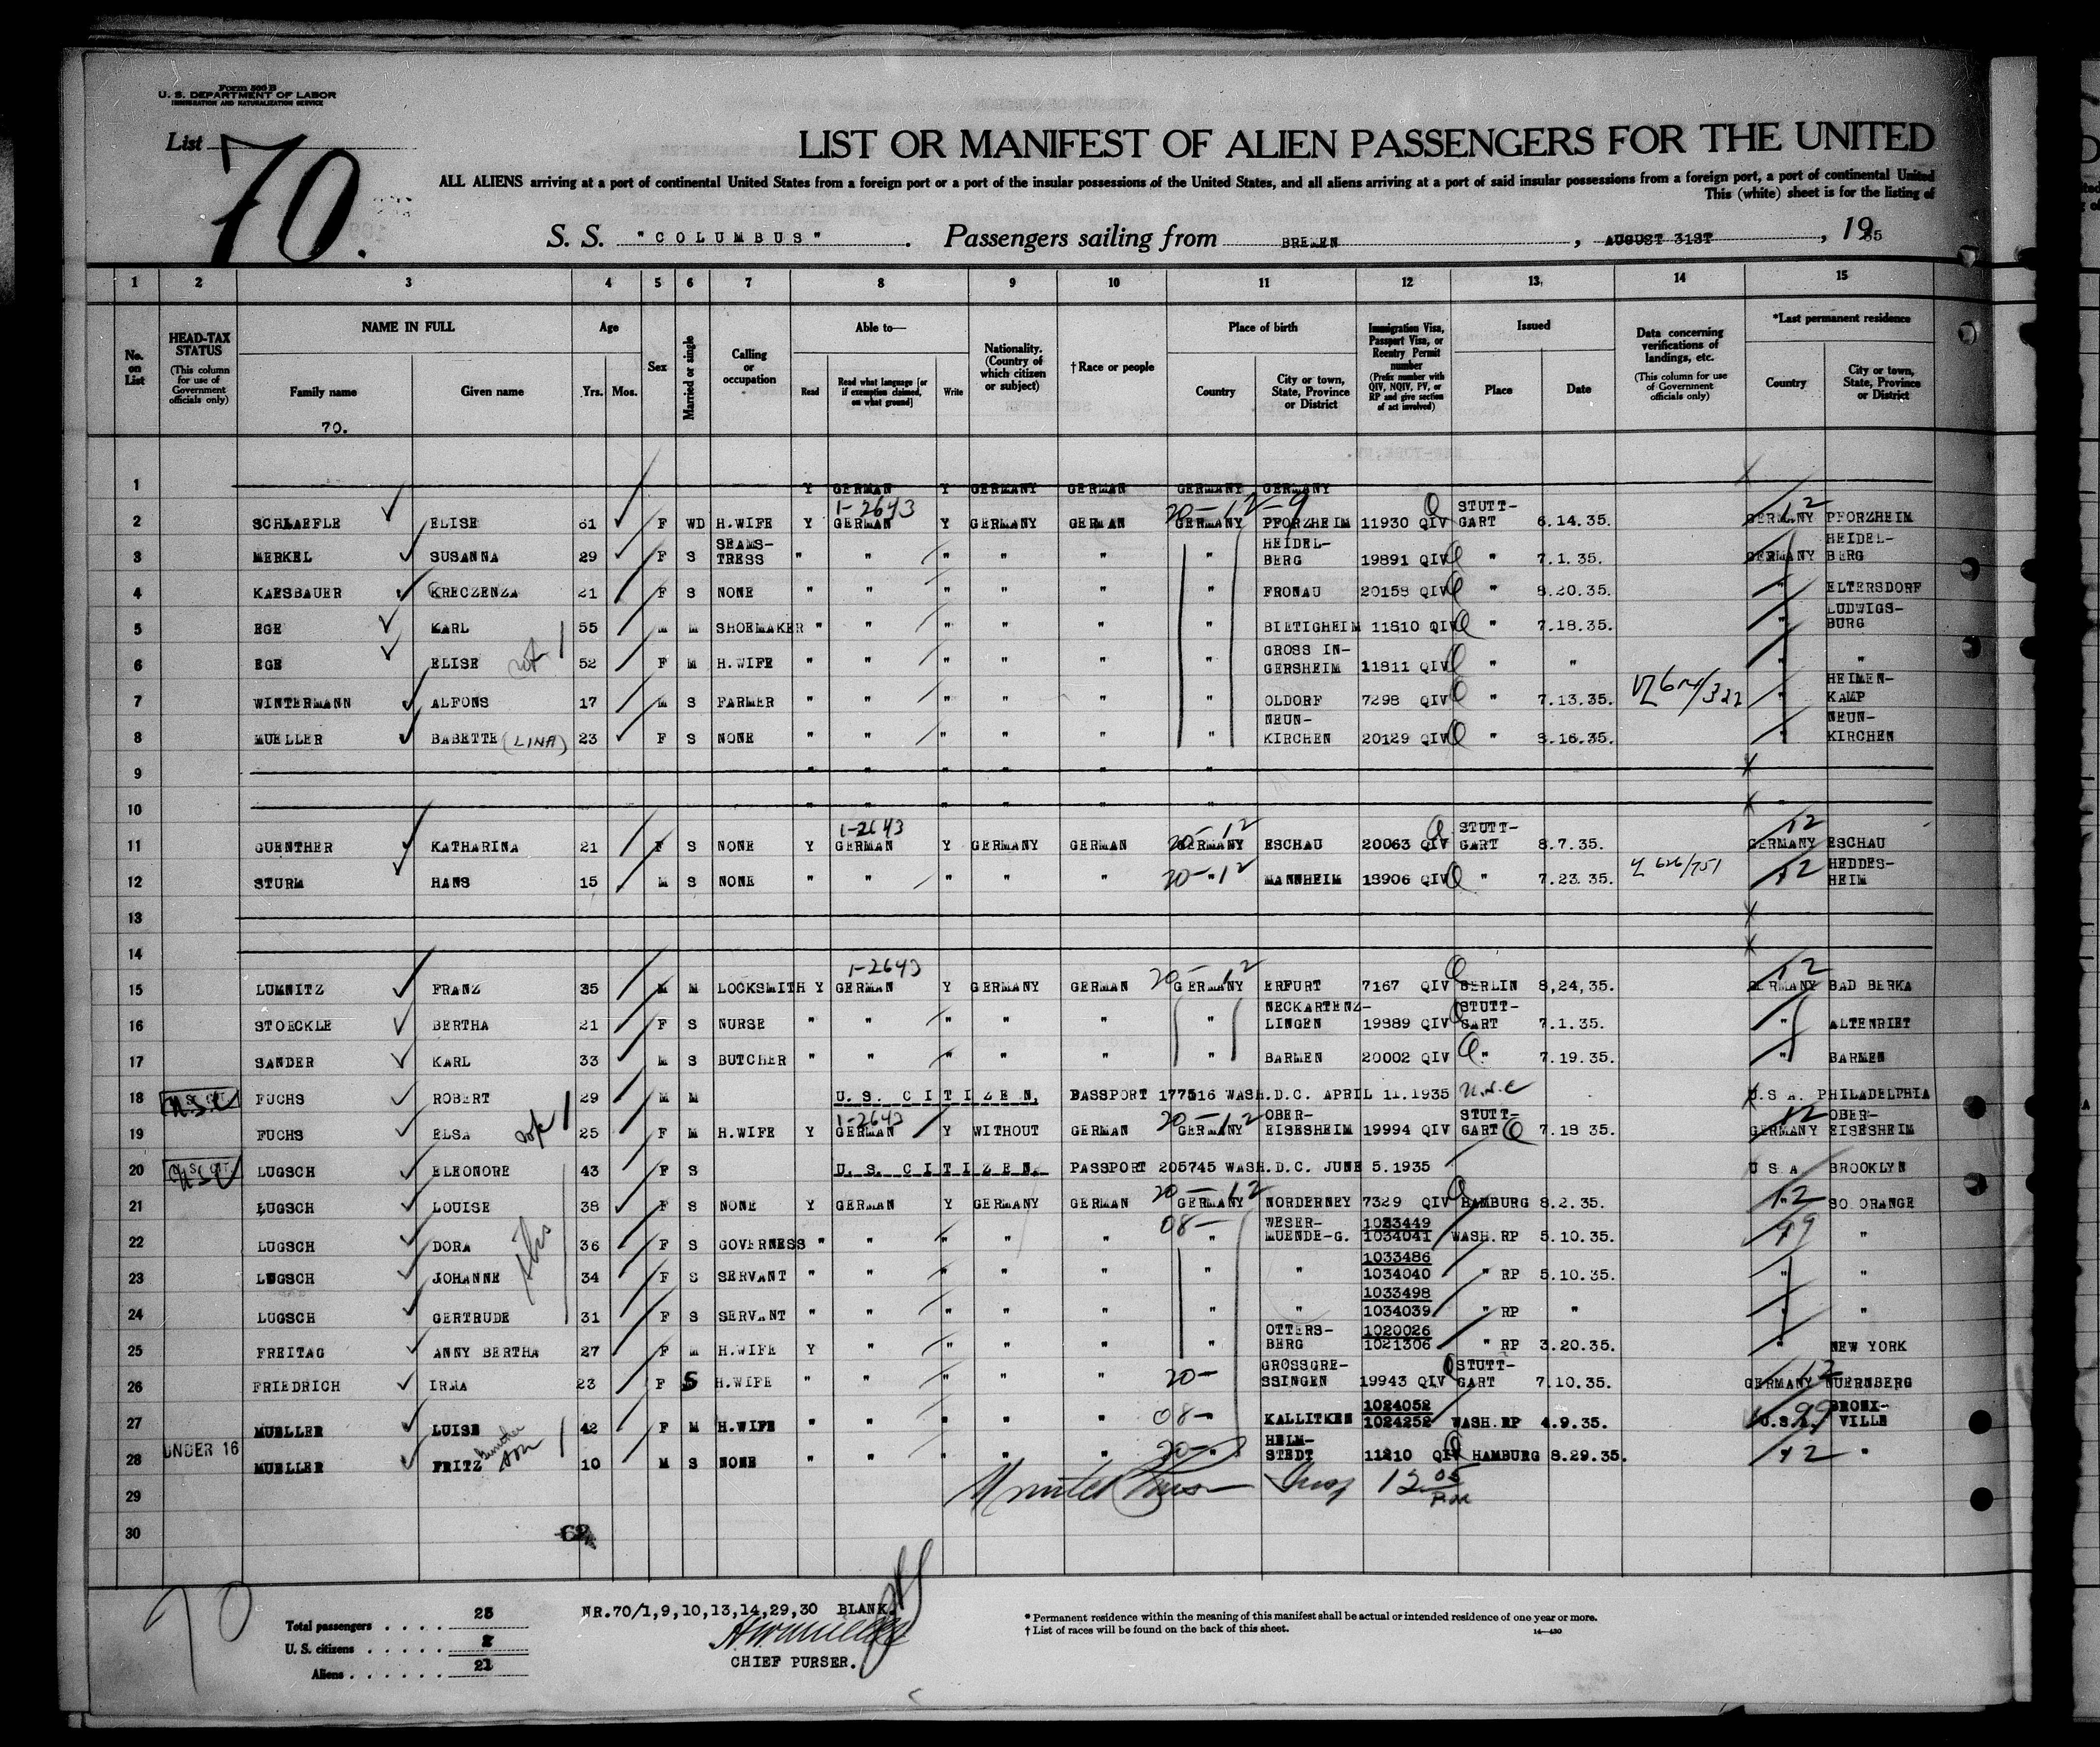 Form 500 B
U. S. DEPARTMENT OF LABOR
IMMIGRATION AND NATURALIZATION SERVICE
List 70.
LIST OR MANIFEST OF ALIEN PASSENGERS FOR THE UNITED
ALL ALIENS arriving at a port of continental United States from a foreign port or a port of the insular possessions of the United States, and all aliens arriving at a port of said insular possessions from a foreign port, a port of continental United
This (white) sheet is for the listing of
S. S. "COLUMBUS". Passengers sailing from BREMEN, AUGUST 31ST, 1935
1 2 3 4 5 6 7 8 9 10 11 12 13 14 15
No. on List
HEAD-TAX STATUS (This column for use of Government officials only)
NAME IN FULL Family name Given name
70.
Age Yrs. Mos.
Sex
Married or single
Calling or occupation
Able to— Read Read what language [or if exemption claimed, on what ground] Write
Nationality. (Country of which citizen or subject)
†Race or people
Place of birth Country City or town, State, Province or District
Immigration Visa, Passport Visa, or Reentry Permit number (Prefix number with QIV, NQIV, PV, or RP and give section of act involved)
Issued Place Date
Data concerning verifications of landings, etc. (This column for use of Government officials only)
*Last permanent residence Country City or town, State, Province or District
1 Y GERMAN Y GERMANY GERMAN GERMANY GERMANY
1-2643 20-12-9 12
2 SCHLAEFLE ELISE 61 F WD H.WIFE Y GERMAN Y GERMANY GERMAN GERMANY PFORZHEIM 11930 QIV STUTT-GART 6.14.35. GERMANY PFORZHEIM
3 MERKEL SUSANNA 29 F S SEAMS-TRESS " " " " " " HEIDEL-BERG 19891 QIV " 7.1.35. GERMANY HEIDEL-BERG
4 KAESBAUER KRECZENZA 21 F S NONE " " " " " " FRONAU 20158 QIV " 8.20.35. " ELTERSDORF
5 EGE KARL 55 M M SHOEMAKER " " " " " " BIETIGHEIM 11810 QIV " 7.18.35. " LUDWIGS-BURG
6 EGE ELISE 52 F M H.WIFE " " " " " " GROSS IN-GERSHEIM 11811 QIV " " " "
7 WINTERMANN ALFONS 17 M S FARMER " " " " " " OLDORF 7298 QIV " 7.13.35. " HEIMEN-KAMP
8 MUELLER BABETTE (LINA) 23 F S NONE " " " " " " NEUN-KIRCHEN 20129 QIV " 8.16.35. " NEUN-KIRCHEN
9 " " " " " "
10 " " " " " " "
1-2643 20-12 12
11 GUENTHER KATHARINA 21 F S NONE Y GERMAN Y GERMANY GERMAN GERMANY ESCHAU 20063 QIV STUTT-GART 8.7.35. GERMANY ESCHAU
12 STURM HANS 15 M S NONE " " " " " 20-"12 MANNHEIM 18906 QIV " 7.23.35. 626/751 12 HEDDES-HEIM
13
14
1-2643 20-12 12
15 LUMNITZ FRANZ 35 M M LOCKSMITH Y GERMAN Y GERMANY GERMAN GERMANY ERFURT 7167 QIV BERLIN 8,24,35. GERMANY BAD BERKA
16 STOECKLE BERTHA 21 F S NURSE " " " " " " NECKARTENZ-LINGEN 19889 QIV STUTT-GART 7.1.35. " ALTENRIET
17 SANDER KARL 33 M S BUTCHER " " " " " " BARMEN 20002 QIV " 7.19.35. " BARMEN
18 U.S.C FUCHS ROBERT 29 M M U.S. CITIZEN, BASSPORT 177516 WASH.D.C. APRIL 11.1935 U.S.C U.S A. PHILADELPHIA
1-2643 20-12 12
19 FUCHS ELSA wife 25 F M H.WIFE Y GERMAN Y WITHOUT GERMAN GERMANY OBER-EISESHEIM 19994 QIV STUTT-GART 7.18 35. GERMANY OBER-EISESHEIM
20 U.S.C LUGSCH ELEONORE 43 F S U.S. CITIZEN. PASSPORT 205745 WASH.D.C. JUNE 5.1935 U S A. BROOKLYN
21 LUGSCH LOUISE 38 F S NONE Y GERMAN Y GERMANY GERMAN 20-12 GERMANY NORDERNEY 7329 QIV HAMBURG 8.2.35. 12 SO.ORANGE
22 LUGSCH DORA 36 F S GOVERNESS " " " " " 08- " WESER-MUENDE-G. 1033449 1034041 WASH.RP 5.10.35. 99 "
23 LUGSCH JOHANNE 34 F S SERVANT " " " " " " " 1033486 1034040 " RP 5.10.35. " "
24 LUGSCH GERTRUDE 31 F S SERVANT " " " " " " " 1033498 1034039 " RP " " "
25 FREITAG ANNY BERTHA 27 F M H.WIFE Y " " " " " OTTERS-BERG 1020026 1021306 " RP 3.20.35. " NEW YORK
26 FRIEDRICH IRMA 23 F S H.WIFE " " " " " 20- GROSSGRE-SSINGEN 19943 QIV STUTT-GART 7.10.35. 12 GERMANY NUERNBERG
27 MUELLER LUISE 42 F M H.WIFE " " " " " 08-" KALLITKEN 1024052 1024252 WASH.RP 4.9.35. U.S.A. 99 BRONX-VILLE
28 UNDER 16 MUELLER FRITZ son 10 M S NONE " " " " " 20-" HELM-STEDT 11210 QIV HAMBURG 8.29.35. 12 "
29 1205 P.M.
30
70
Total passengers . . . . 23
U. S. citizens . . . . . 2
Aliens . . . . . . 21
NR.70/1,9,10,13,14,29,30 BLANK.
CHIEF PURSER.
* Permanent residence within the meaning of this manifest shall be actual or intended residence of one year or more.
† List of races will be found on the back of this sheet.
14—430